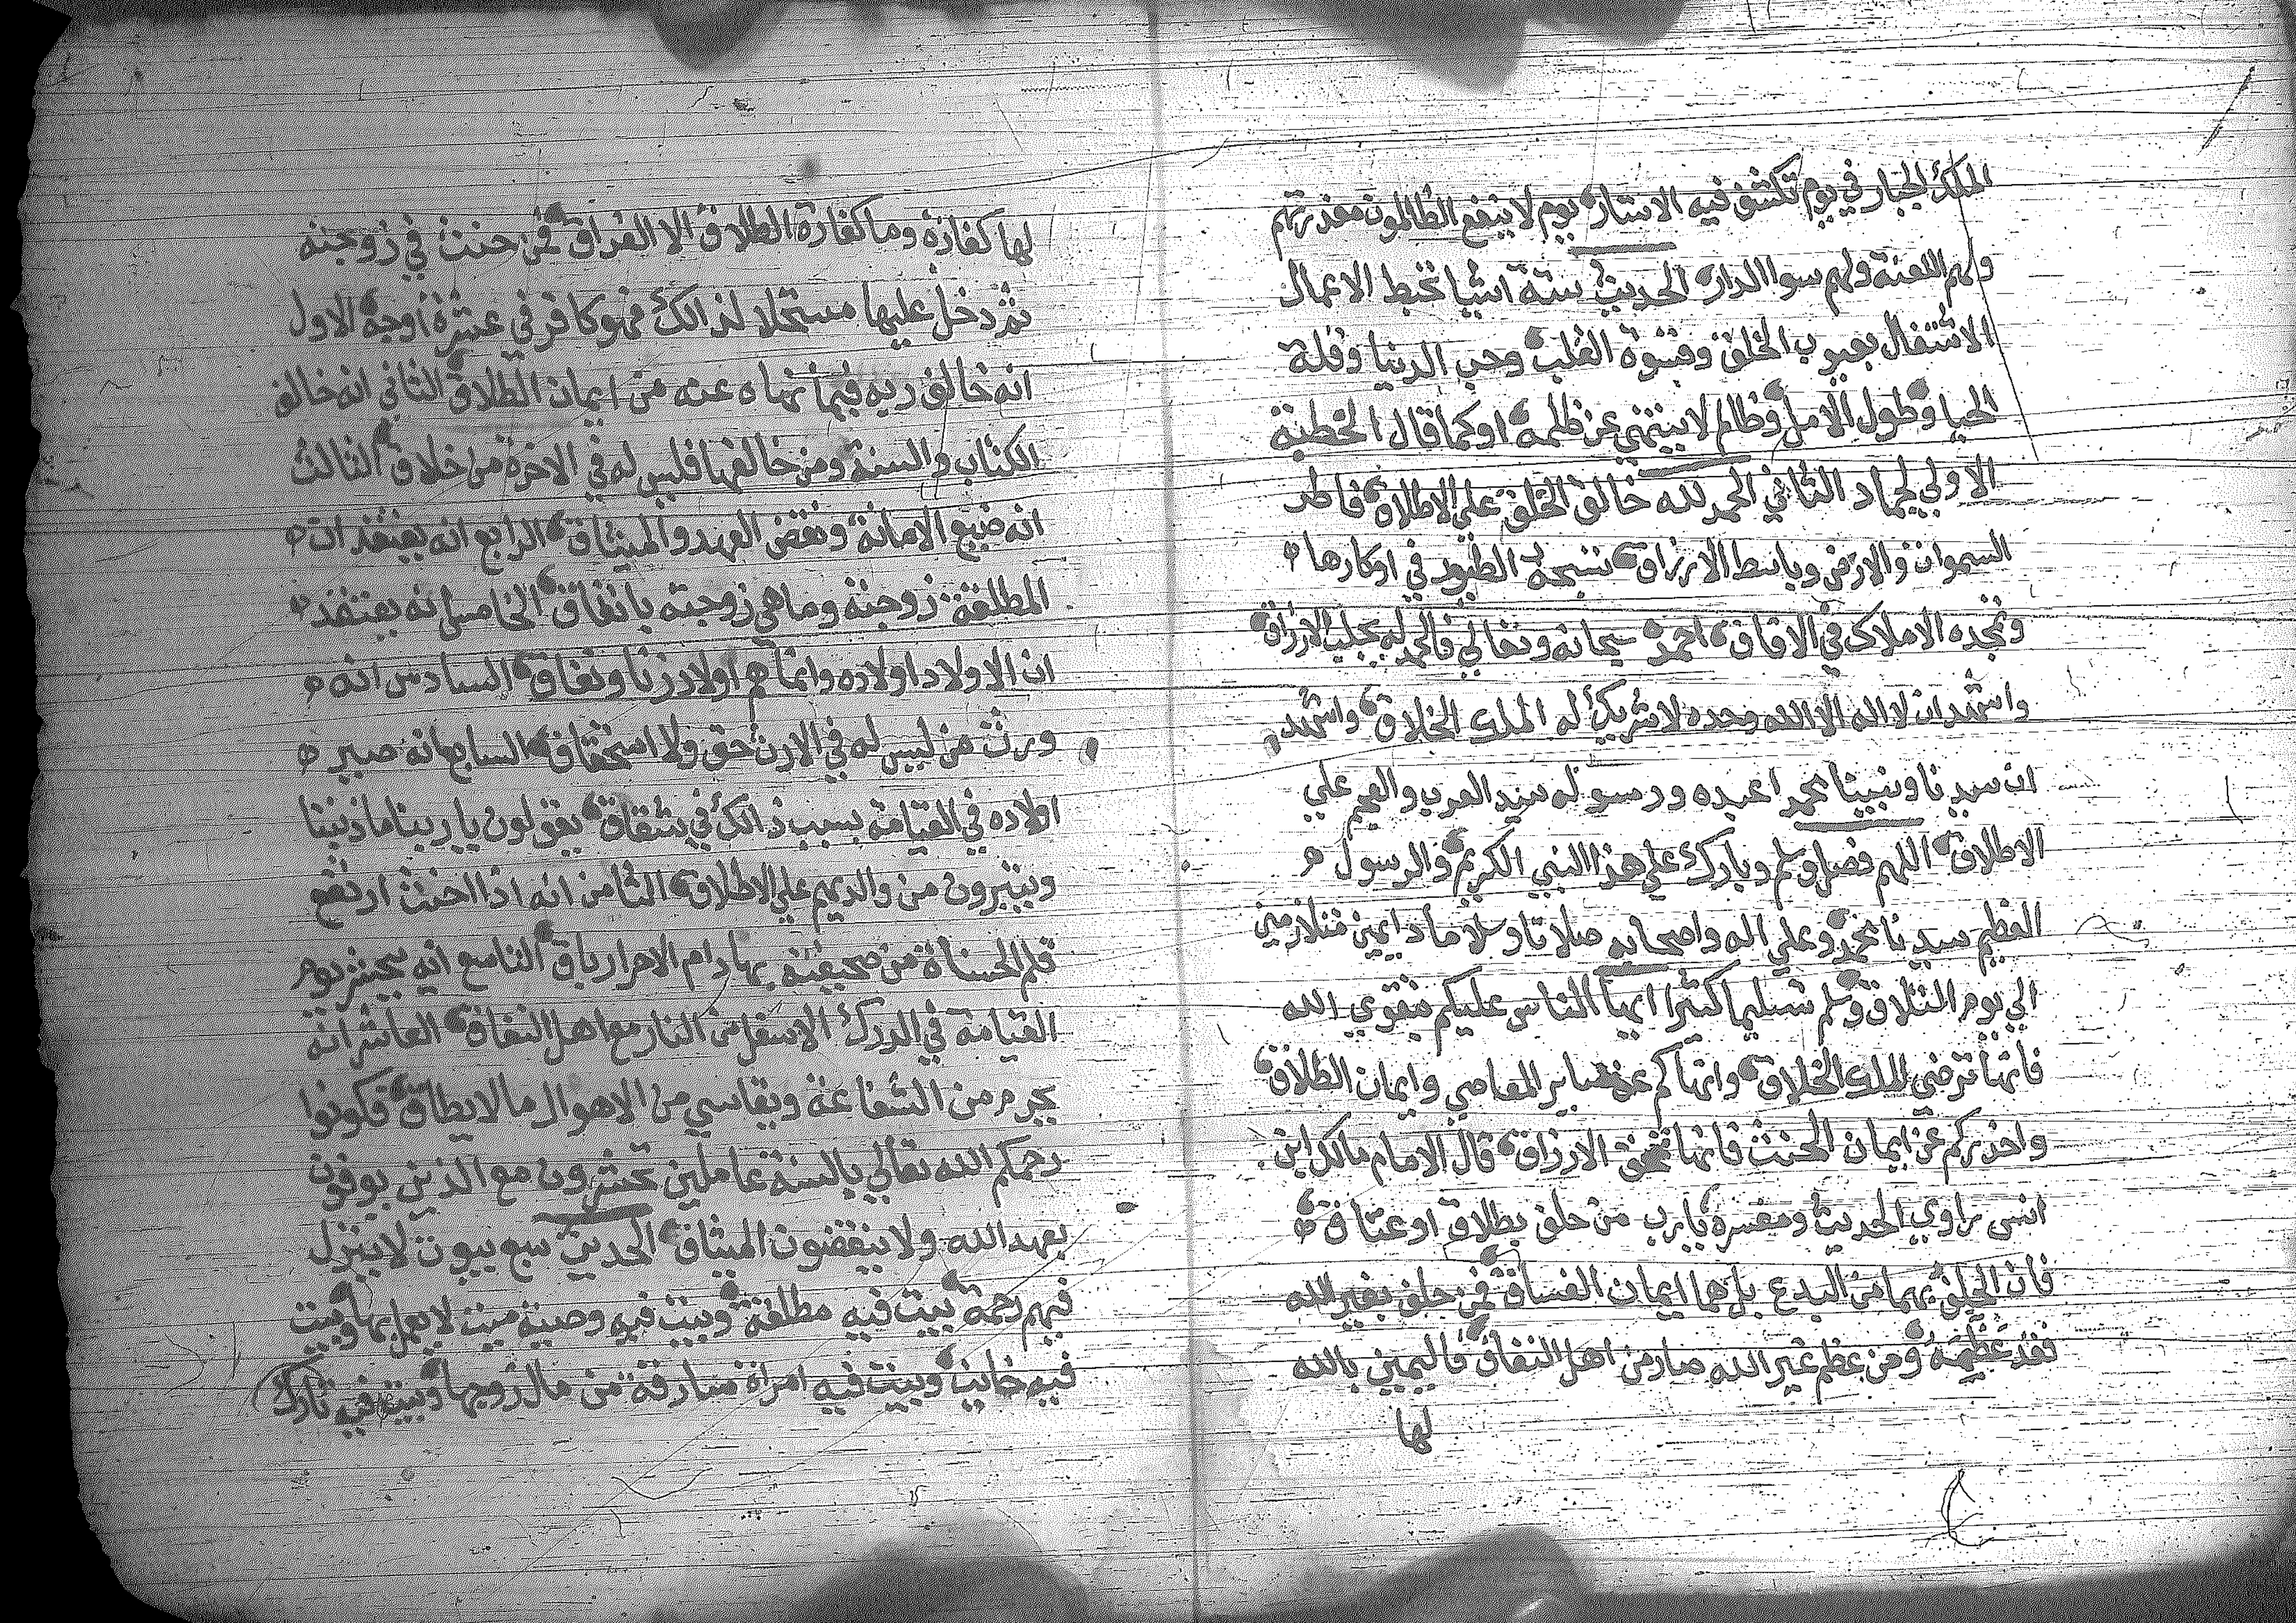 الملك الجبار في يوم تكشف فيه الاستار يوم لا ينفع الظالمون معذرتهم
ولهم اللعنة ولهم سوا الدار الحديث ستة اشيا تحبط الاعمال
الاشتغال بعيوب الخلق وقسوة القلب وحب الدنيا وقلة
الحيا وطول الامل وظالم لا ينتهي عن ظلمه او كما قال الخطبة
الاولي لجماد الثاني الحمد لله خالق الخلق علي الاطلاق فاطر
السموات والارض وباسط الارزاق تسبحه الطيور في اوكارها
وتمجده الاملاك في الافاق احمده سبحانه وتعالي فالحمد له يجلب الارزاق
واشهد ان لا اله الا الله وحده لا شريك له الملك الخلاق واشهد
ان سيدنا ونبينا محمدا عبده ورسوله سيد العرب والعجم علي
الاطلاق اللهم فصل وسلم وبارك علي هذا النبي الكريم والرسول
العظيم سيدنا محمد وعلي اله واصحابه صلاتا وسلاما دايمين متلازمين
الي يوم التلاق وسلم تسليما كثيرا ايها الناس عليكم بتقوي الله
فانها ترضي الملك الخلاق وانهاكم عن ساير المعاصي وايمان الطلاق
واحذركم عن ايمان الحنث فانها تمحق الارزاق قال الامام مالك ابن
انس راوي الحديث ومفسره يا رب من حلف بطلاق او عتاق
فان الحلف بهما من البدع بل هما ايمان الفساق فمن حلف بغير الله
فقد عظمه ومن عظم غير الله صار من اهل النفاق فاليمين بالله
لها
لها كفارة وما كفارة الطلاق الا الفراق فمن حنث في زوجته
ثم دخل عليها مستحلا لذالك فهو كافر في عشرة اوجه الاول
انه خالف ربه فيما نهاه عنه من ايمان الطلاق الثاني انه خالف
الكتاب والسنة ومن خالفها فليس له في الاخرة من خلاق الثالث
انه ضيع الامانة ونقض العهد والميثاق الرابع انه يعتقد ان
المطلقة زوجته وما هي زوجته باتفاق الخامس انه يعتقد
ان الاولاد اولاده وانما هم اولاد زنا ونفاق السادس انه
ورث من ليس له في الارث حق ولا استحقاق السابع انه صير
اولاده في القيامة بسبب ذالك في شقاق يقولون يا ربنا ما ذنبنا
ويتبرون من والديهم علي الاطلاق الثامن انه اذا احنث ارتفع
قلم الحسناة من صحيفته بهادام الامرار باق التاسع انه يحشر يوم
القيامة في الدرك الاسفل من النار مع اهل النفاق العاشر انه
يحرم من الشفاعة ويقاسي من الاهوال ما لا يطاق فكونوا
رحمكم الله تعالي بالسنة عاملين تحشرون مع الذين يوفون
بعهد الله ولا ينقضون الميثاق الحديث سبع بيوت لا ينزل
فيهم رحمة بيت فيه مطلقة وبيت فيه وصية ميت لا يعمل بها وبيت
فيه خاين وبيت فيه امراة سارقة من مال زوجها وبيت فيه تارك